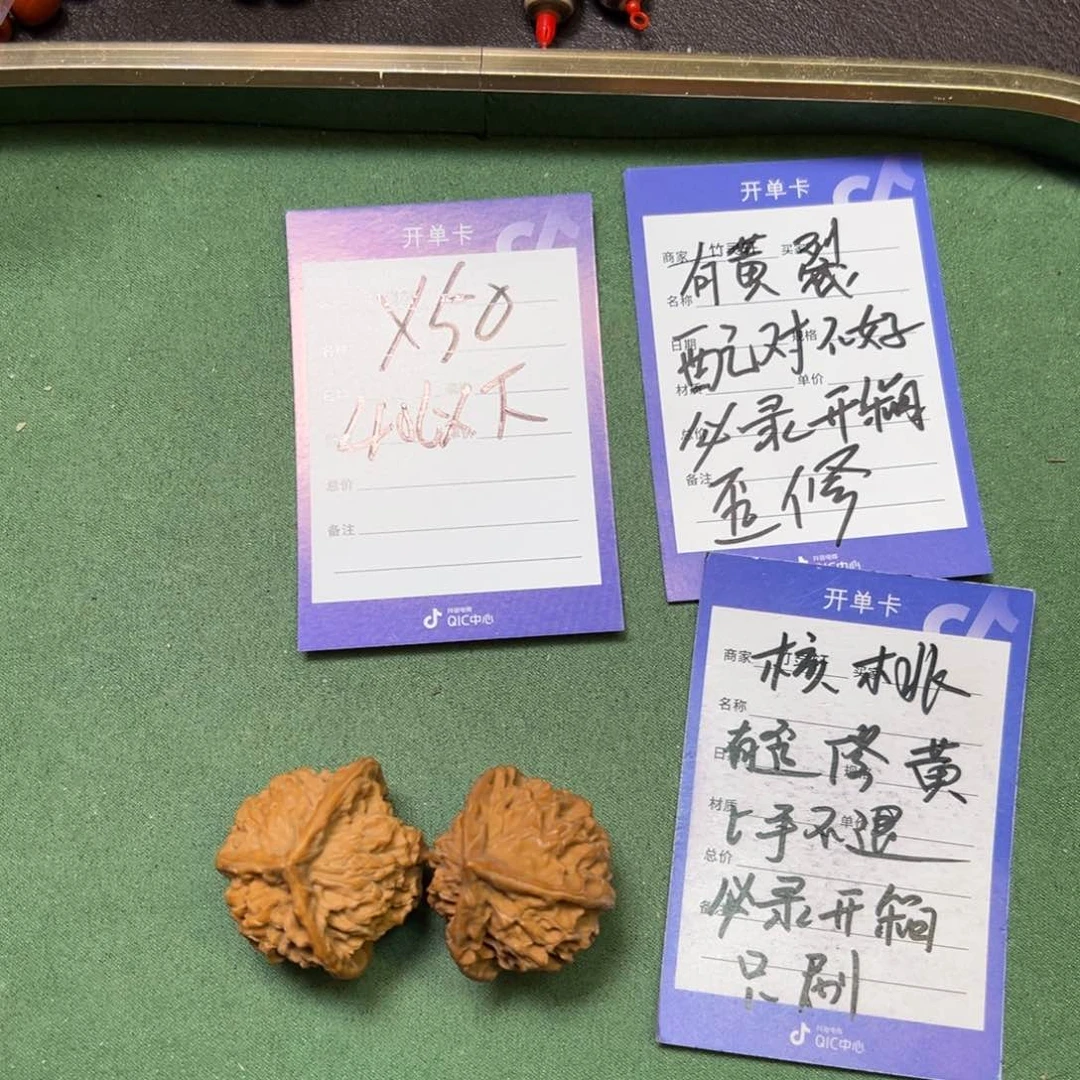 开单卡
X50
40以下
总价
备注
抖音电商
QIC中心
开单卡
商家 竹
名称
有黄裂
日期 规格
配对不好
材质 单价
必录开箱
备注
歪修
抖音电商
QIC中心
开单卡
商家
核桃
名称
有歪修黄
材质 单价
上手不退
总价
必录开箱
只刷
抖音电商
QIC中心